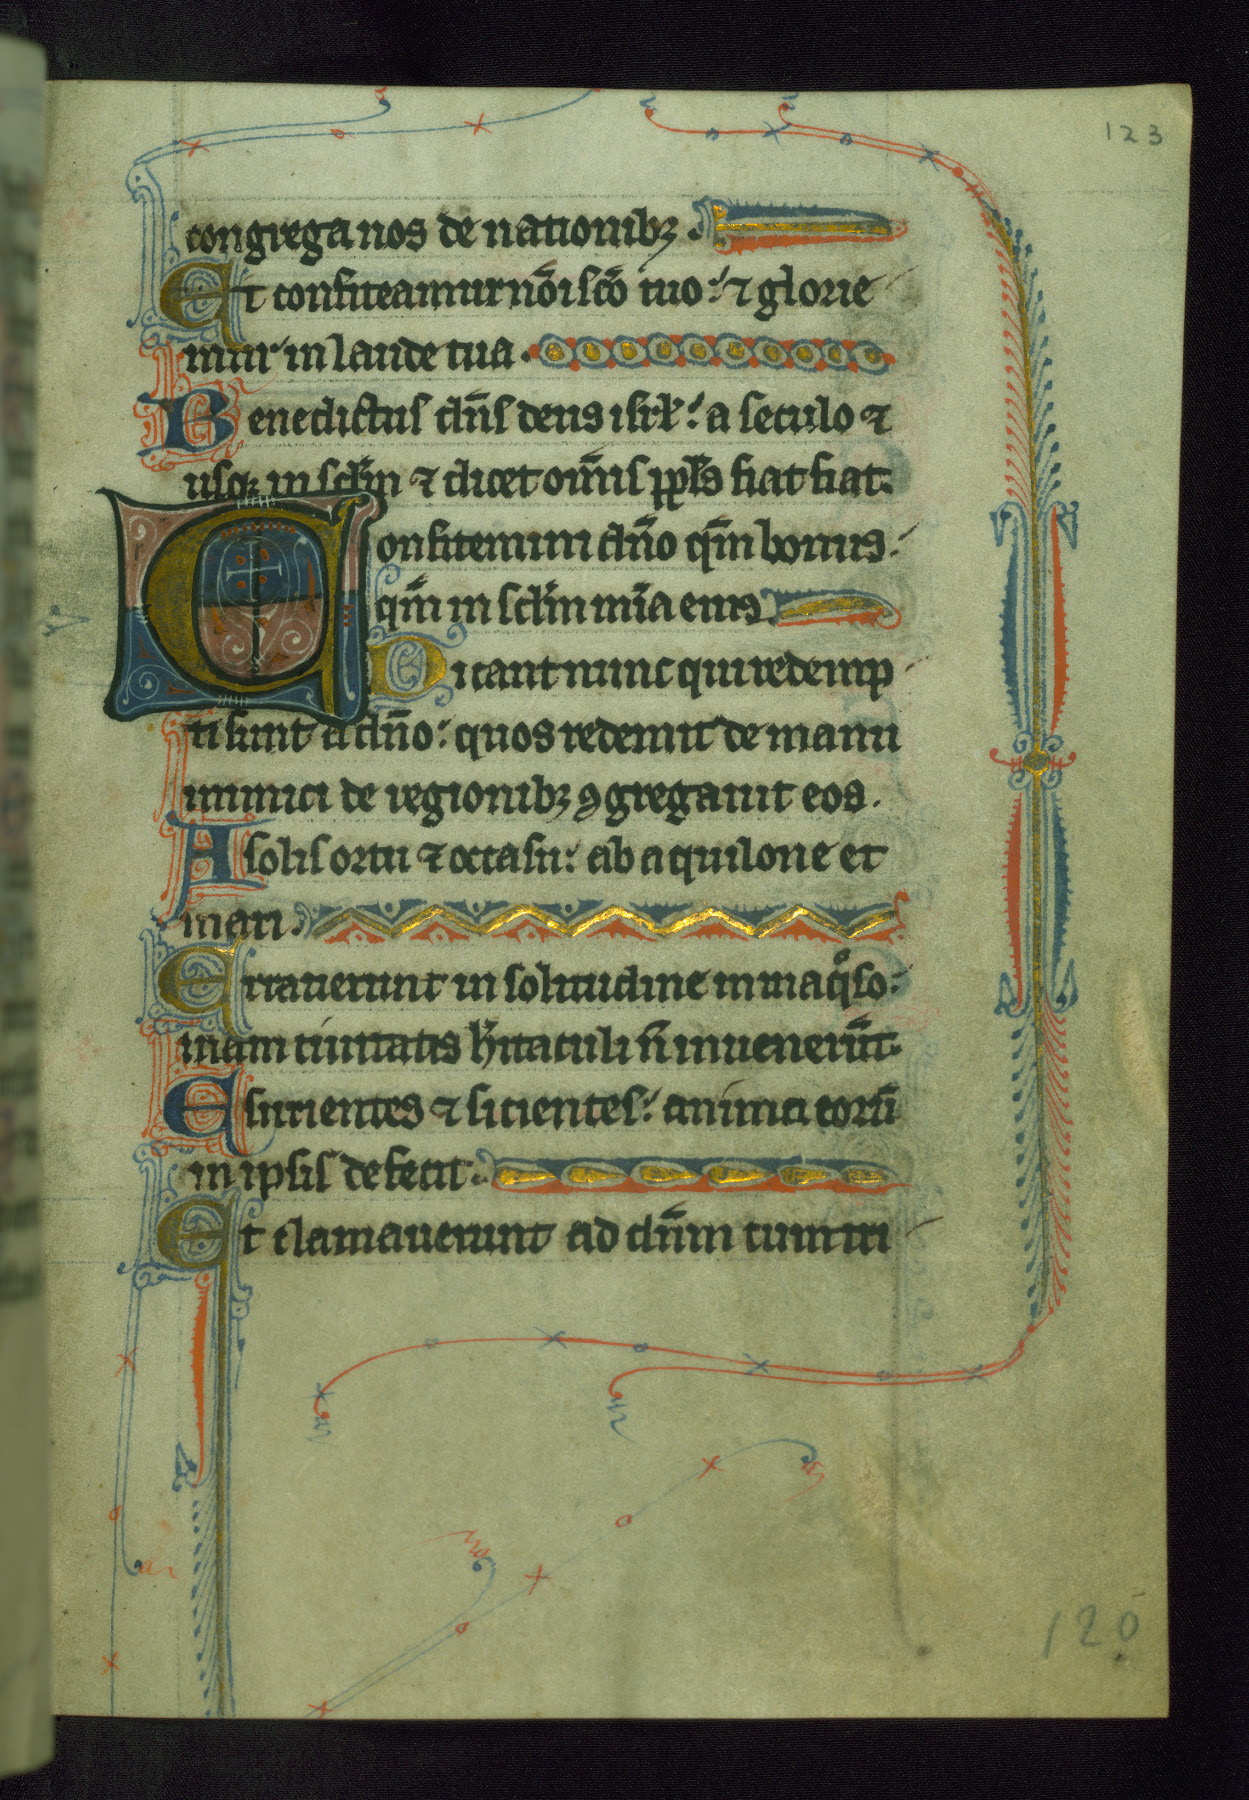 123
congrega nos de nationibꝫ.
Et confiteamur nōi sc̄o tuo: ⁊ glorie
mur in laude tua.
Benedictus dn̄s deus isrł: a seculo ⁊
usqꝫ in scł̄m ⁊ dicet om̄is ppłs fiat fiat.
Confitemini dn̄o qm̄ bonus:
qm̄ in scł̄m mīa eius.
Dicant nunc qui redemp
ti sunt a dn̄o: quos redemit de manu
inimici de regionibꝫ ꝯgregauit eos.
A solis ortu ⁊ occasu: ab aquilone et
mari.
Errauerunt in solitudine in inaqͦso:
uiam ciuitatis hītaculi n̄ inuenerūt.
Esurientes ⁊ sicientes: anima eorū
in ipsis defecit.
Et clamauerunt ad dn̄m cum tri
120